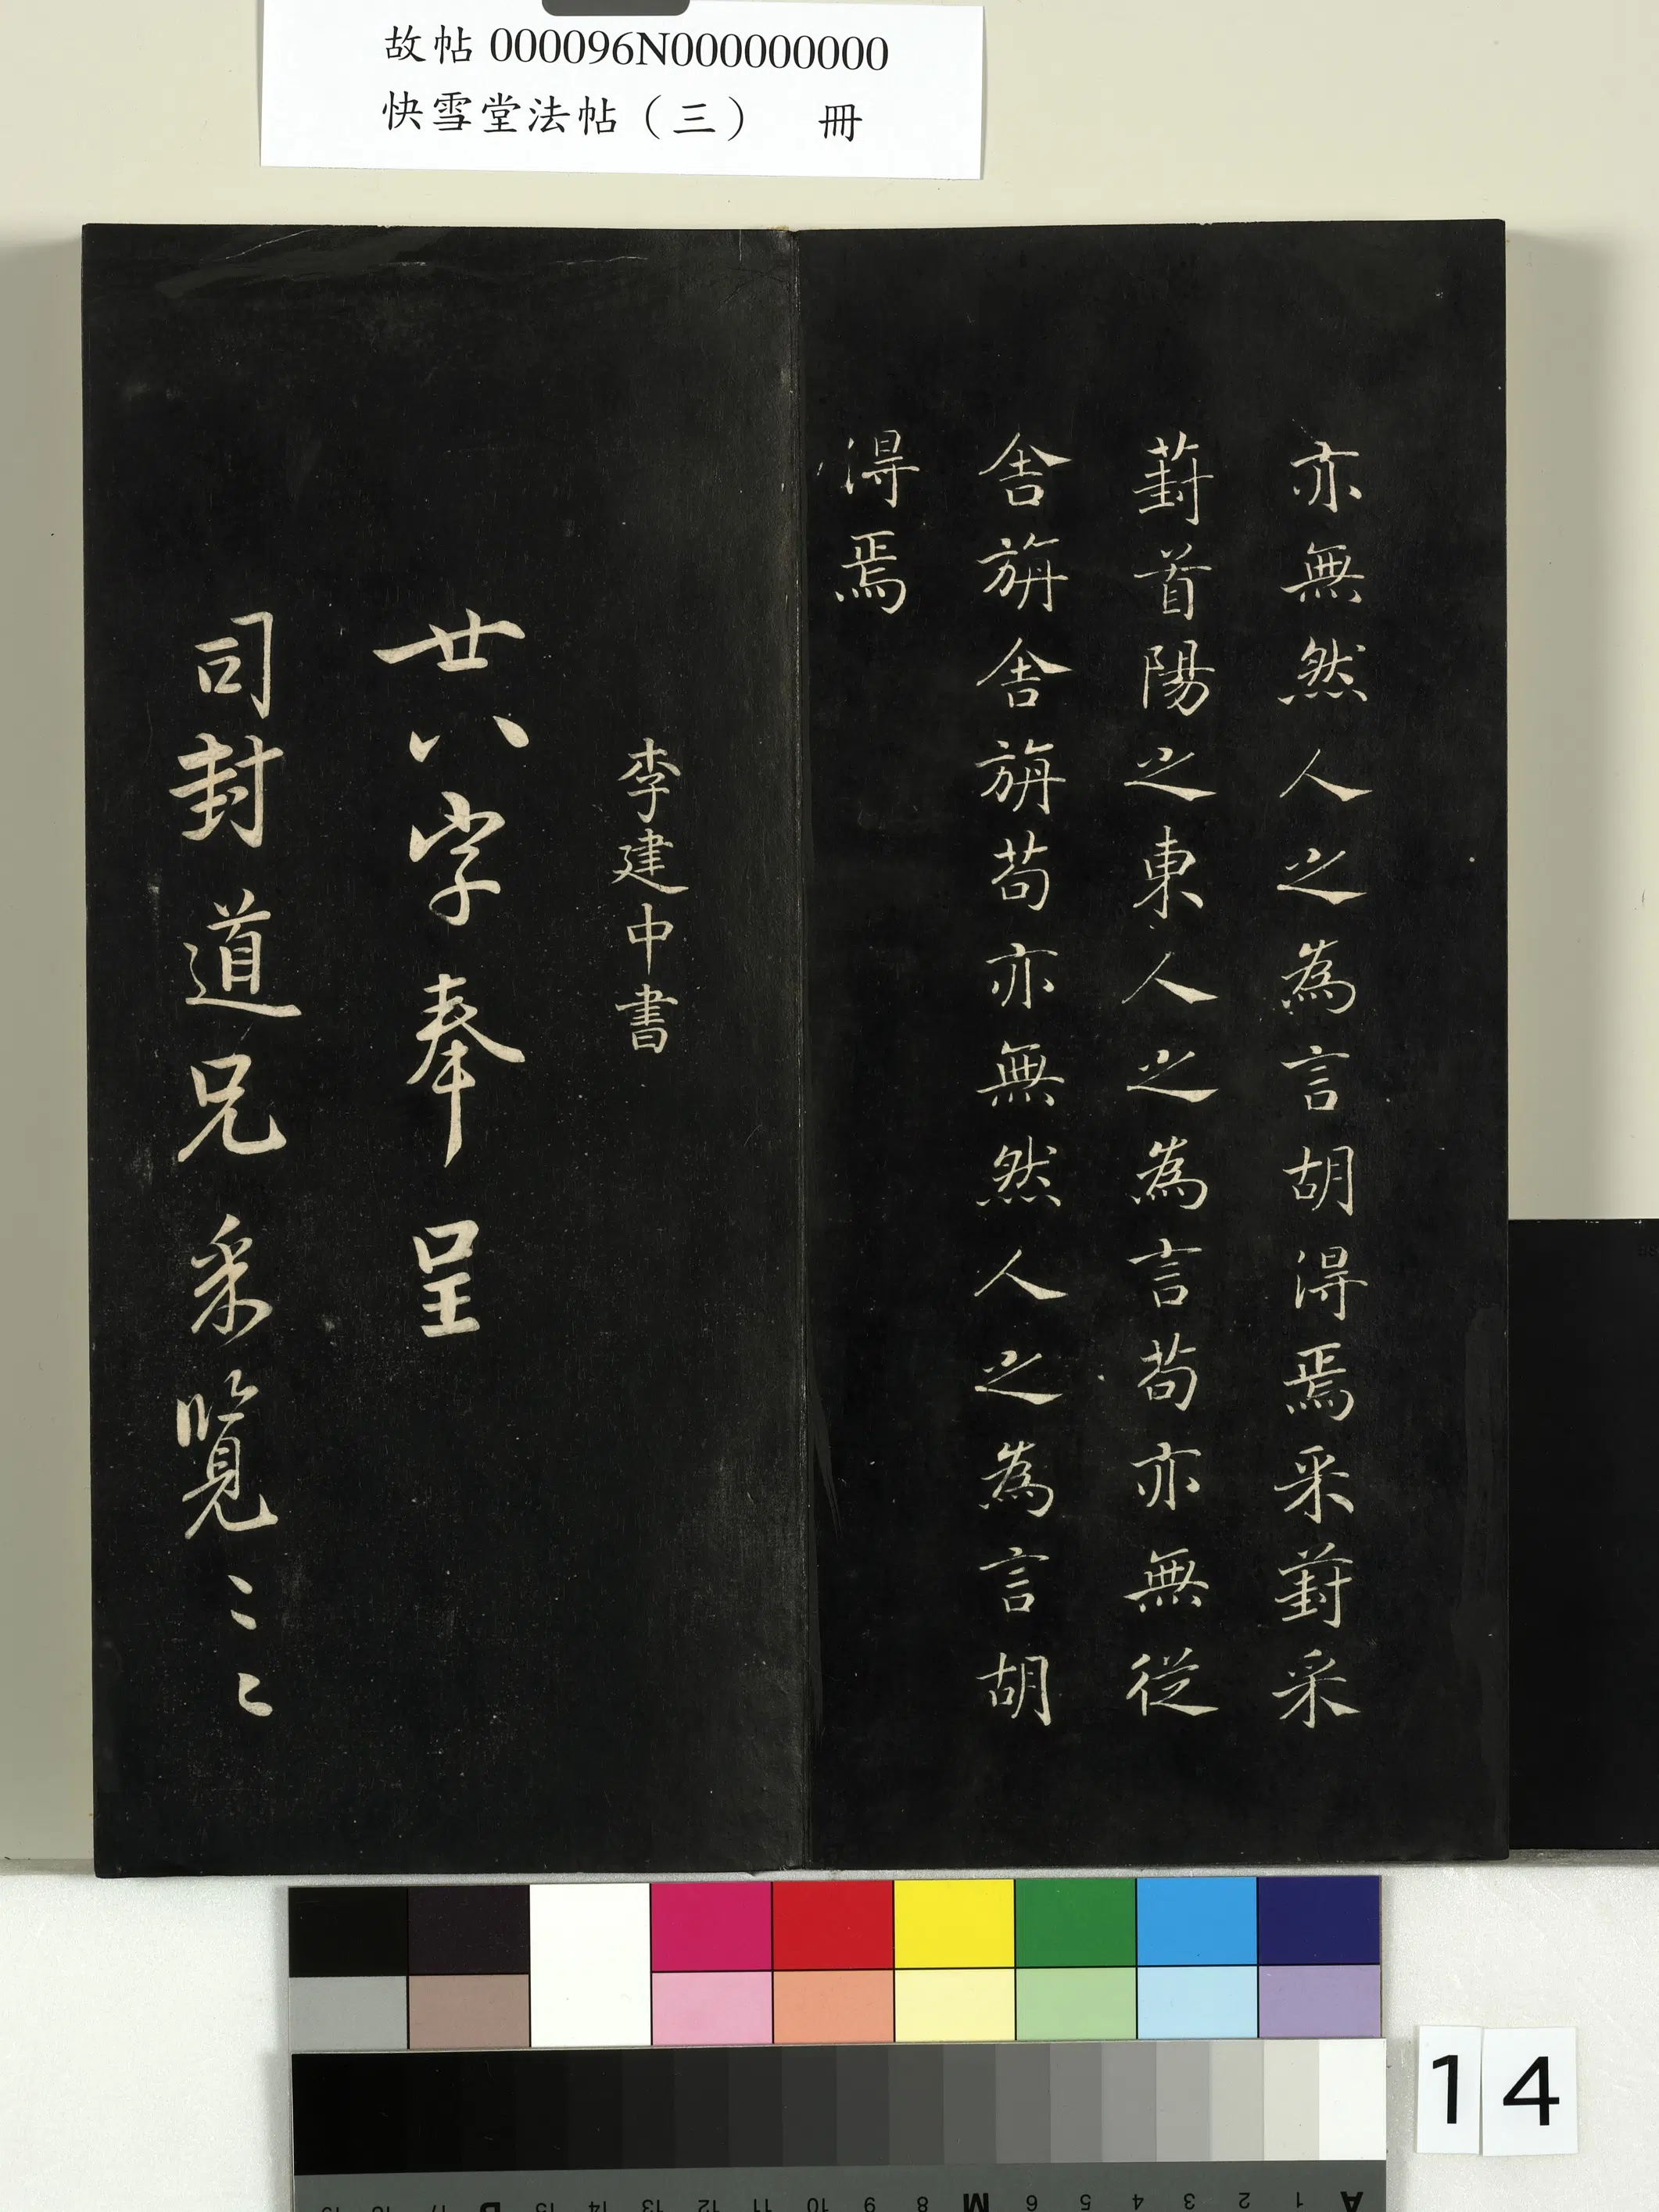 故帖 000096N000000000
快雪堂法帖（三） 冊
亦無然人之為言胡得焉采葑采
葑首陽之東人之為言苟亦無從
舍旃舍旃苟亦無然人之為言胡
得焉
李建中書
廿八字奉呈
司封道兄采覽
14
A 1 2 3 4 5 6 M 8 9 10 11 12 13 14 15 B 17 18 19